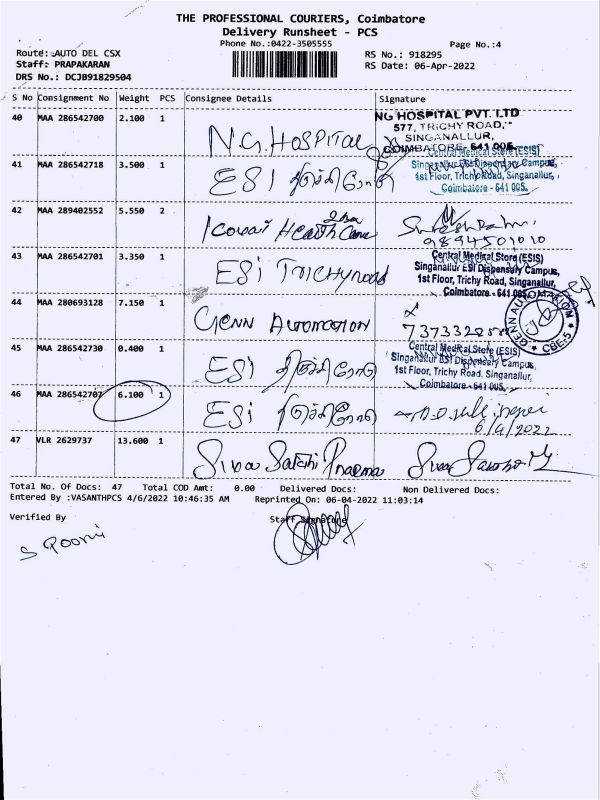 THE PROFESSIONAL COURIERS, Coimbatore
Delivery Runsheet - PCS
Phone No.:0422-3505555
Page No.:4
Route: AUTO DEL CSX
RS No.: 918295
Staff: PRAPAKARAN
RS Date: 06-Apr-2022
DRS No.: DCJB91829504
S No Consignment No Weight PCS Consignee Details Signature
40 MAA 286542700 2.100 1 N.G. HOSPITAL
NG HOSPITAL PVT. LTD
577, TRICHY ROAD,
SINGANALLUR,
COIMBATORE - 641 005.
41 MAA 286542718 3.500 1 ESI திருச்சி ரோடு
Central Medical Store (ESIS)
Singanallur ESI Dispensary Campus,
1st Floor, Trichy Road, Singanallur,
Coimbatore - 641 005.
42 MAA 289402552 5.550 2 Kovai Health Care
9894501010
43 MAA 286542701 3.350 1 ESI TRICHY Road
Central Medical Store (ESIS)
Singanallur ESI Dispensary Campus,
1st Floor, Trichy Road, Singanallur,
Coimbatore - 641 005.
44 MAA 280693128 7.150 1 GENN AUTOMATION
GENN AUTOMATION
CBE-5
45 MAA 286542730 0.400 1 ESI திருச்சி ரோடு
Central Medical Store (ESIS)
Singanallur ESI Dispensary Campus,
1st Floor, Trichy Road. Singanallur,
Coimbatore - 641 005.
46 MAA 286542707 6.100 1 ESI திருச்சி ரோடு
6/4/2022
47 VLR 2629737 13.600 1 Siva Sakthi Pharma
Total No. Of Docs: 47 Total COD Amt: 0.00 Delivered Docs: Non Delivered Docs:
Entered By :VASANTHPCS 4/6/2022 10:46:35 AM Reprinted On: 06-04-2022 11:03:14
Verified By
Staff Signature
S Poorni